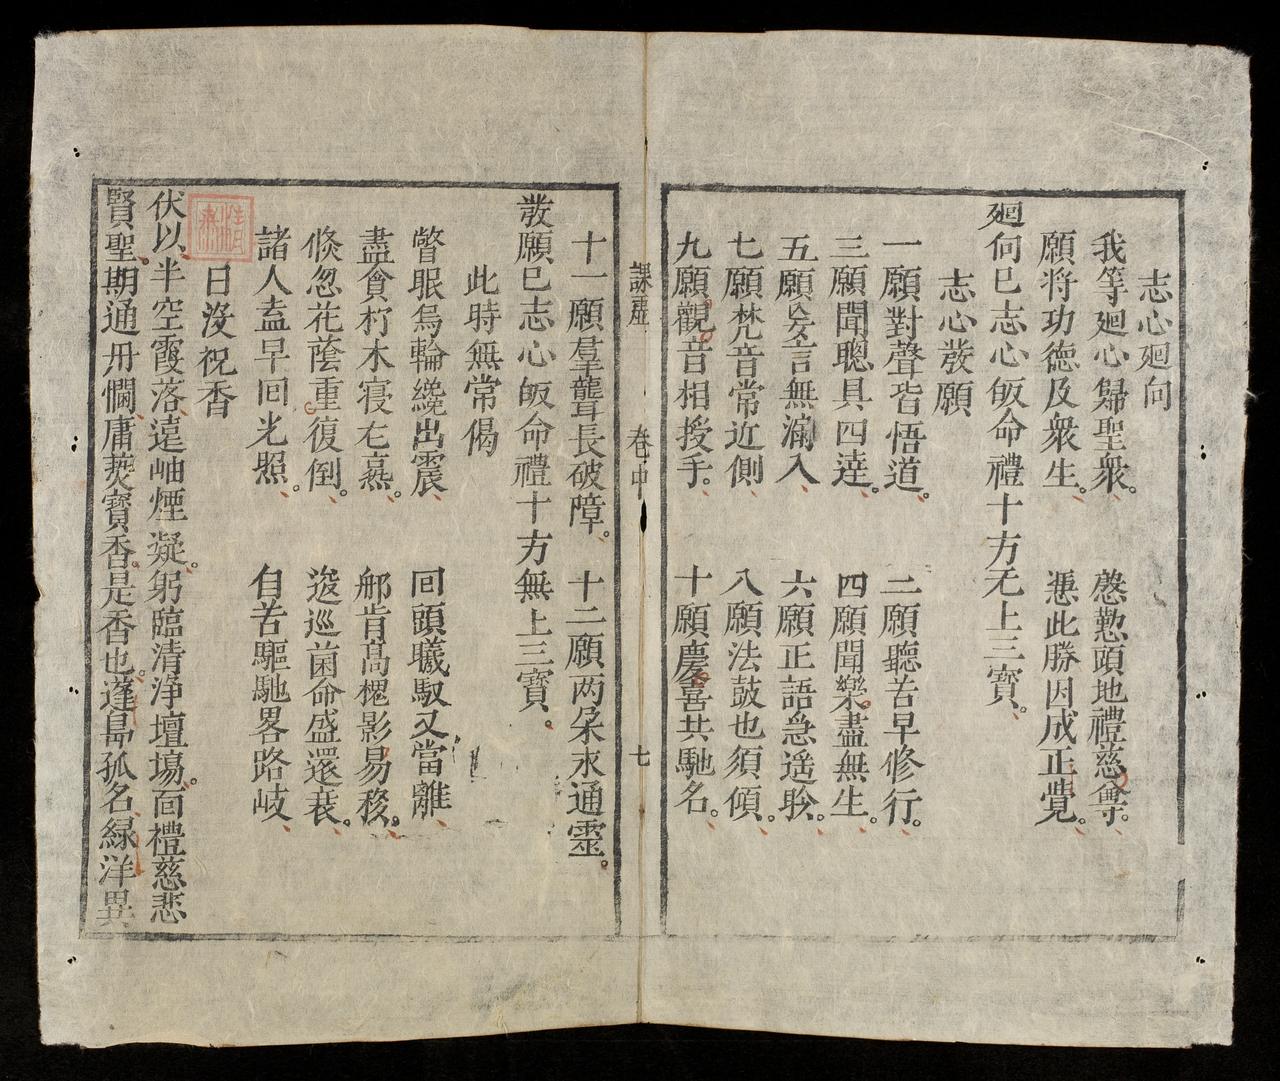 志心廻向
我等廻心歸聖衆。 慇懃頭地禮慈尊。
願將功德及衆生、 慿此勝因成正覺。
廻向已志心皈命禮十方无上三寶、
志心發願
一願對聲皆悟道。 二願聽苦早修行。
三願聞聰具四達。 四願聞樂盡無生。
五願妄言無漏入、 六願正語急遥聆。
七願梵音常近側 八願法鼓也須傾。
九願觀音相授手。 十願慶喜共馳名。
課虛 卷中 七
十一願羣聾長破障。 十二願两朵永通靈。
發願已志心皈命禮十方無上三寶。
此時無常偈
瞥眼烏輪纔出震、 回頭曦馭又當離、
盡貪柠木寝右熹。 郍肯髙槐影易移。
倐忽花蔭重復倒。 逡巡菌命盛還衰。
諸人盍早回光照。 自苦驅馳畧路岐、
日沒祝香
伏以、半空霞落、遠岫煙凝。躬臨清淨壇場。面禮慈悲
賢聖、期通冊悃、庸爇寶香。是香也。蓬島孤名、緑洋異